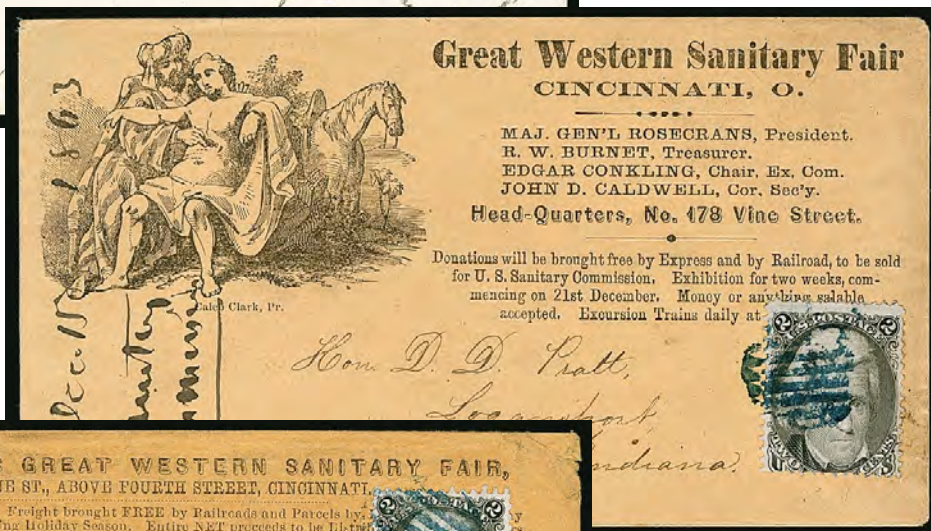 Great Western Sanitary Fair
CINCINNATI, O.
MAJ. GEN'L ROSECRANS, President.
R. W. BURNET, Treasurer.
EDGAR CONKLING, Chair, Ex. Com.
JOHN D. CALDWELL, Cor. Sec'y.
Head-Quarters, No. 178 Vine Street.
Donations will be brought free by Express and by Railroad, to be sold
for U. S. Sanitary Commission. Exhibition for two weeks, com-
mencing on 21st December. Money or anything salable
accepted. Excursion Trains daily at
Caleb Clark, Pr.
Dec 18 1863
Hon. D. D. Pratt,
Logansport,
Indiana.
2 2
U.S. POSTAGE
GREAT WESTERN SANITARY FAIR,
ST., ABOVE FOURTH STREET, CINCINNATI.
Freight brought FREE by Railroads and Parcels by
Holiday Season. Entire NET proceeds to be
2 2